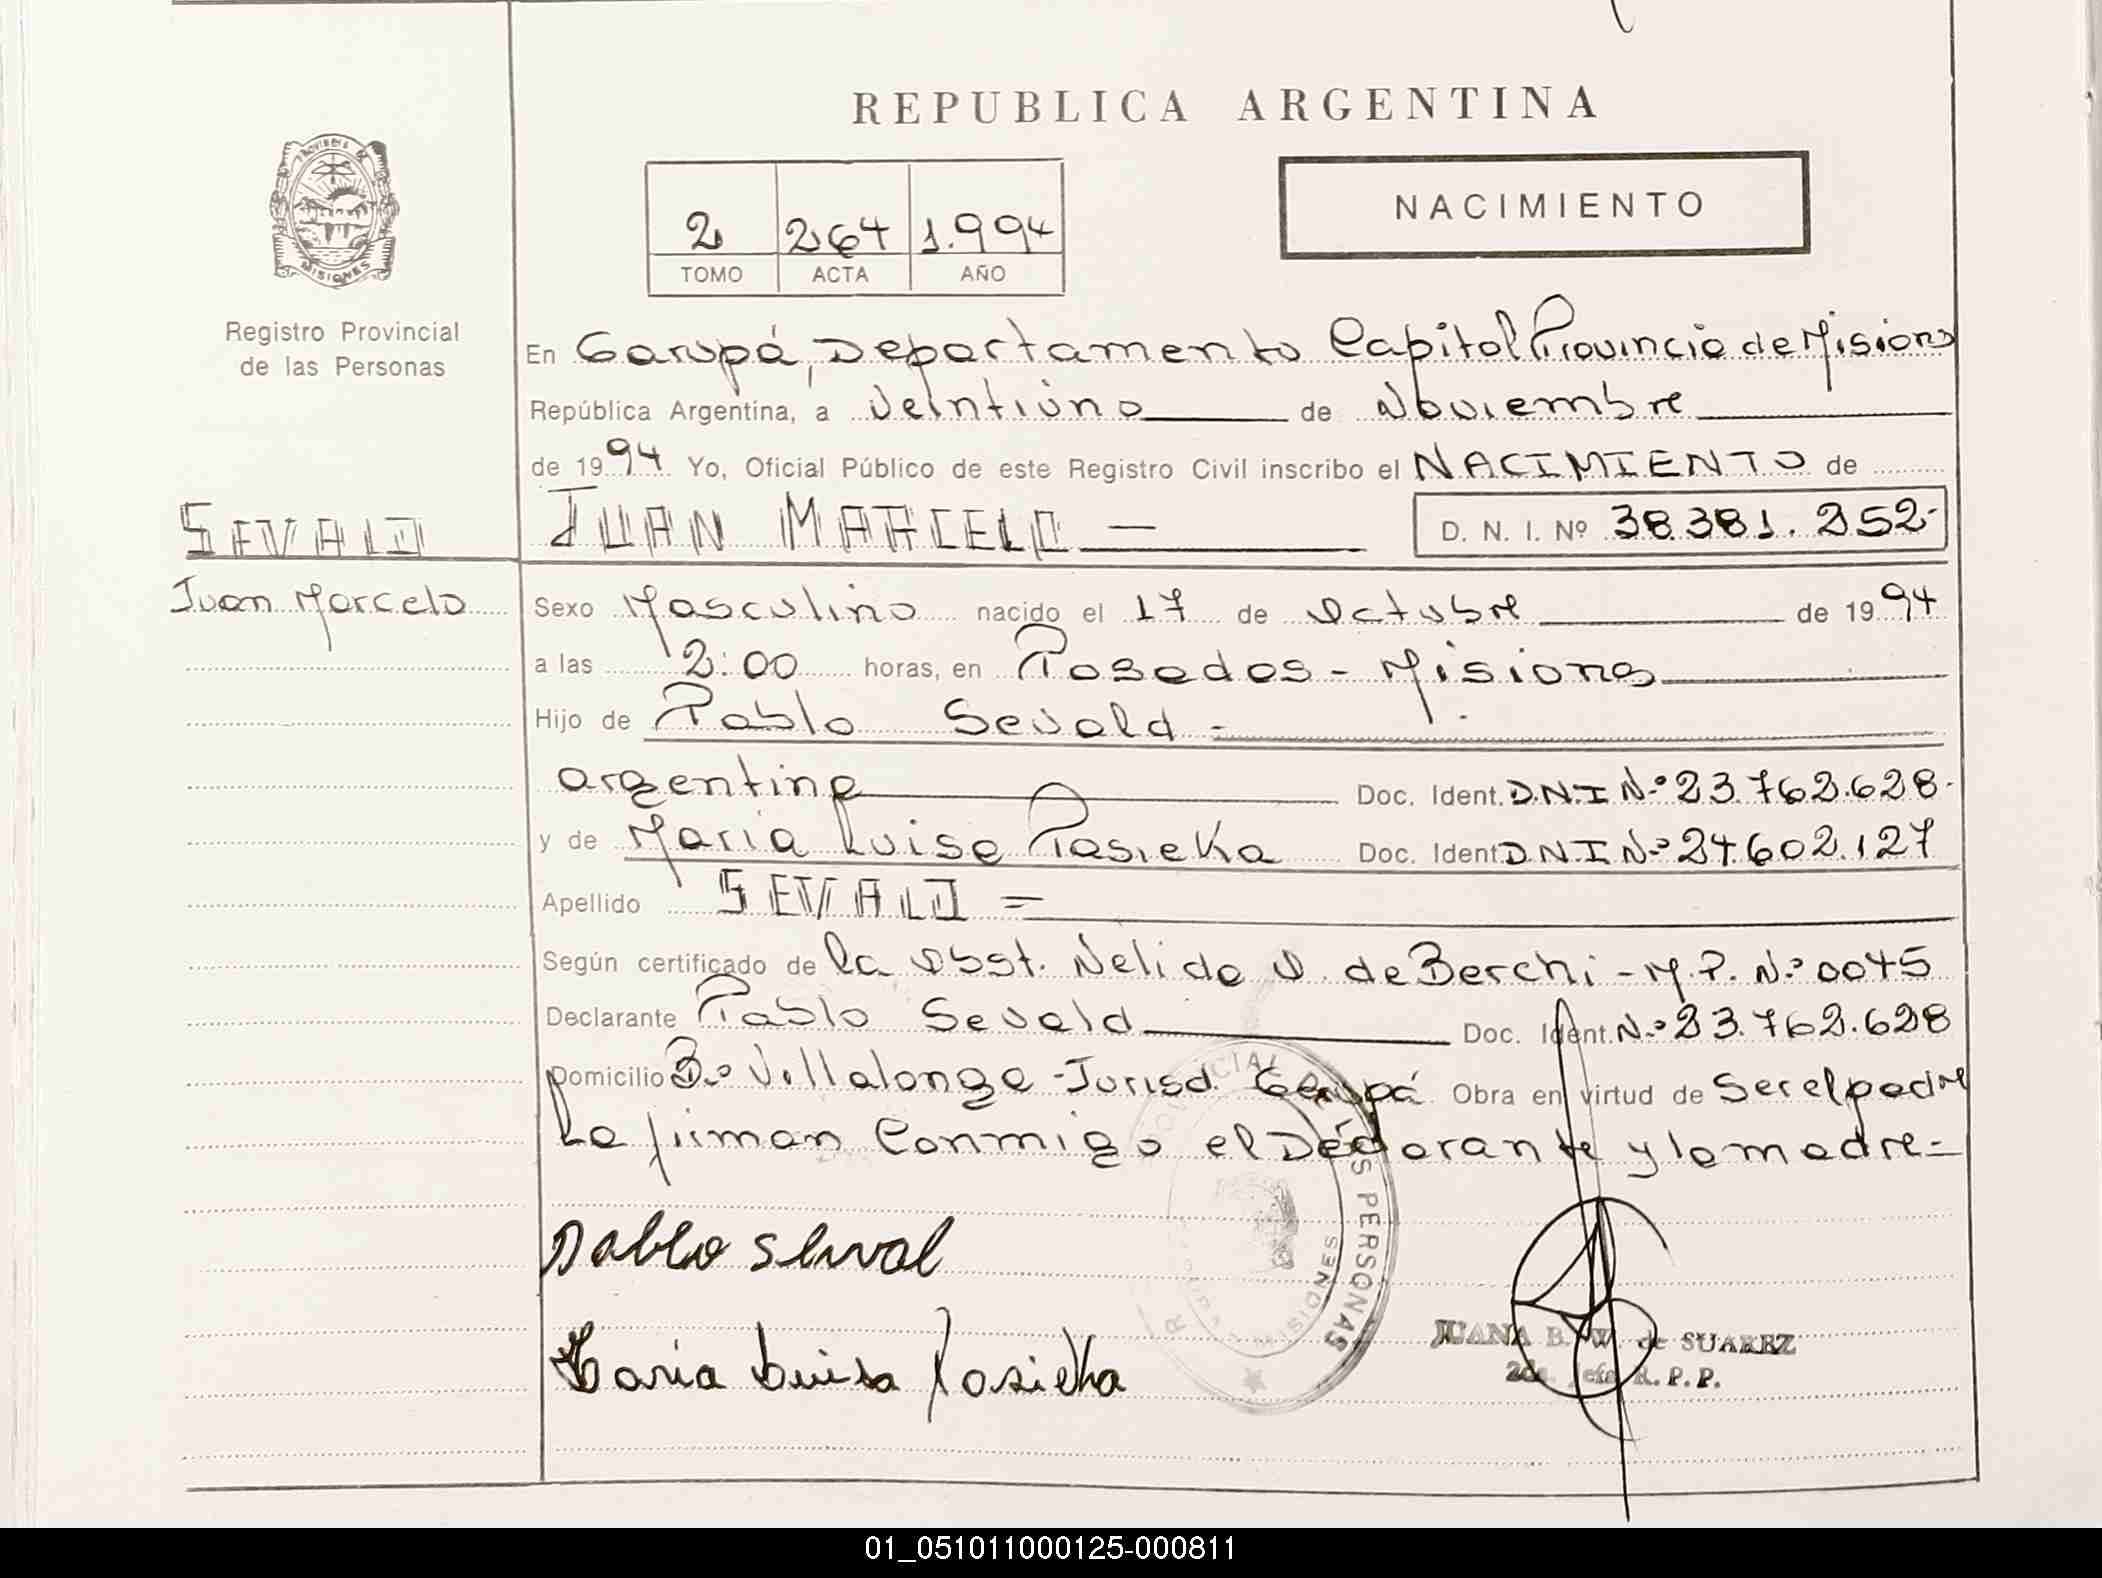 REPUBLICA ARGENTINA
PROVINCIA DE
MISIONES
Registro Provincial
de las Personas
2 264 1.994
TOMO ACTA AÑO
NACIMIENTO
En Garupá, Departamento Capital Provincia de Misiones
República Argentina, a Veintiuno de Noviembre
de 1994 Yo, Oficial Público de este Registro Civil inscribo el NACIMIENTO de
SEVALD JUAN MARCELO D. N. I. Nº 38.381.252-
Juan Marcelo
Sexo Masculino nacido el 17 de Octubre de 1994
a las 2:00 horas, en Posadas - Misiones
Hijo de Pablo Sevald -
argentina Doc. Ident. D.N.I Nº 23.762.628-
y de Maria Luisa Pasieka Doc. Ident. D.N.I Nº 24.602.127
Apellido SEVALD =
Según certificado de la Obst. Nelida O. de Berchi - M.P. Nº 0045
Declarante Pablo Sevald Doc. Ident. Nº 23.762.628
Domicilio Bº Villalonga - Jurisd. Garupá Obra en virtud de Ser el padre
La firman Conmigo el Declarante y la madre =
Pablo Sewal
Maria Luisa Pasieka
PROVINCIAL DE LAS PERSONAS
MISIONES
JUANA B. W. de SUAREZ
2da. Jefe R. P. P.
01_051011000125-000811